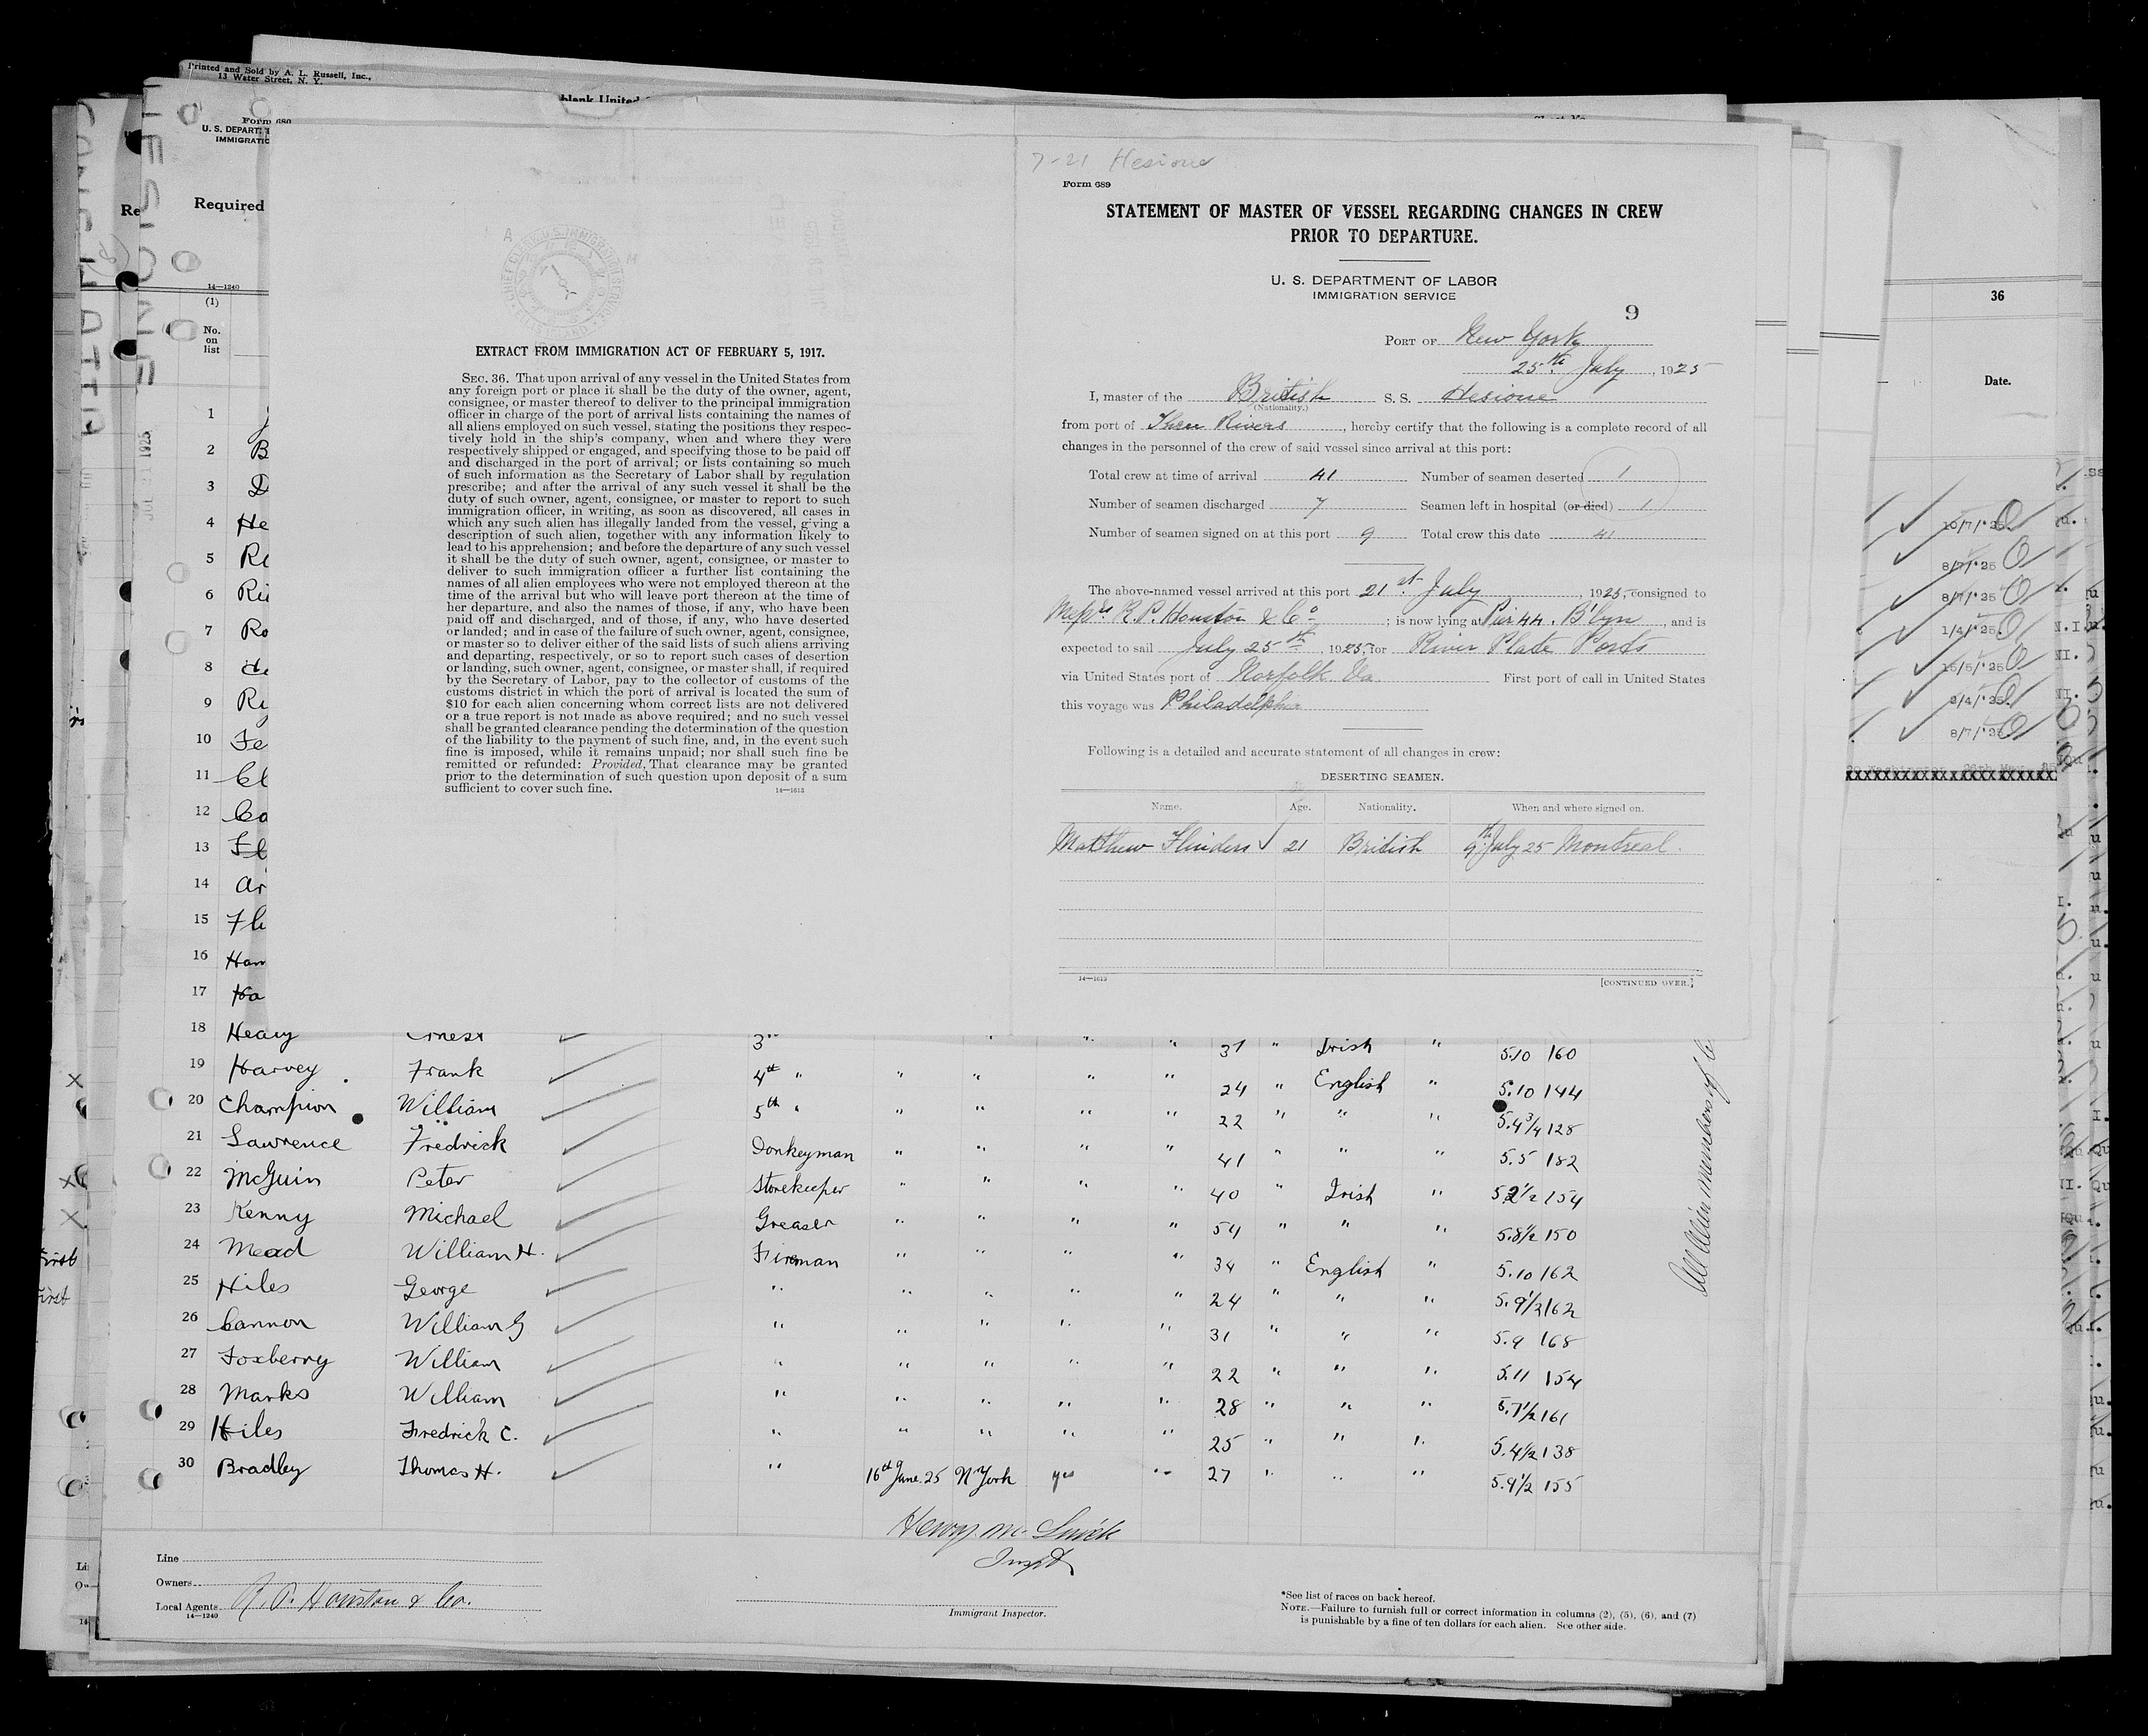 Printed and Sold by A. L. Russell, Inc.,
13 Water Street, N. Y.
blank United
Form 689
U. S. DEPART
IMMIGRATIO
Required
14—1240
(1)
No.
on
list
1
2 B
3 D
4 He
5 Re
6 Ri
7 Ro
8
9 Re
10 Fe
11 Cl
12 Co
13
14 Ar
15 Fle
16 Ham
17 Ha
EXTRACT FROM IMMIGRATION ACT OF FEBRUARY 5, 1917.
SEC. 36. That upon arrival of any vessel in the United States from
any foreign port or place it shall be the duty of the owner, agent,
consignee, or master thereof to deliver to the principal immigration
officer in charge of the port of arrival lists containing the names of
all aliens employed on such vessel, stating the positions they respec-
tively hold in the ship's company, when and where they were
respectively shipped or engaged, and specifying those to be paid off
and discharged in the port of arrival; or lists containing so much
of such information as the Secretary of Labor shall by regulation
prescribe; and after the arrival of any such vessel it shall be the
duty of such owner, agent, consignee, or master to report to such
immigration officer, in writing, as soon as discovered, all cases in
which any such alien has illegally landed from the vessel, giving a
description of such alien, together with any information likely to
lead to his apprehension; and before the departure of any such vessel
it shall be the duty of such owner, agent, consignee, or master to
deliver to such immigration officer a further list containing the
names of all alien employees who were not employed thereon at the
time of the arrival but who will leave port thereon at the time of
her departure, and also the names of those, if any, who have been
paid off and discharged, and of those, if any, who have deserted
or landed; and in case of the failure of such owner, agent, consignee,
or master so to deliver either of the said lists of such aliens arriving
and departing, respectively, or so to report such cases of desertion
or landing, such owner, agent, consignee, or master shall, if required
by the Secretary of Labor, pay to the collector of customs of the
customs district in which the port of arrival is located the sum of
$10 for each alien concerning whom correct lists are not delivered
or a true report is not made as above required; and no such vessel
shall be granted clearance pending the determination of the question
of the liability to the payment of such fine, and, in the event such
fine is imposed, while it remains unpaid; nor shall such fine be
remitted or refunded: Provided, That clearance may be granted
prior to the determination of such question upon deposit of a sum
sufficient to cover such fine.
14—1613
7-21 Hesione
Form 689
STATEMENT OF MASTER OF VESSEL REGARDING CHANGES IN CREW
PRIOR TO DEPARTURE.
U. S. DEPARTMENT OF LABOR
IMMIGRATION SERVICE
9
PORT OF New York
25th July, 1925
I, master of the British S. S. Hesione
(Nationality.)
from port of Three Rivers, hereby certify that the following is a complete record of all
changes in the personnel of the crew of said vessel since arrival at this port:
Total crew at time of arrival 41 Number of seamen deserted 1
Number of seamen discharged 7 Seamen left in hospital (or died) 1
Number of seamen signed on at this port 9 Total crew this date 41
The above-named vessel arrived at this port 21st July, 1925, consigned to
Messrs R. P. Houston & Co; is now lying at Pier 44. B'lyn, and is
expected to sail July 25th, 1925, for River Plate Ports
via United States port of Norfolk Va First port of call in United States
this voyage was Philadelphia
Following is a detailed and accurate statement of all changes in crew:
DESERTING SEAMEN.
Name. Age. Nationality. When and where signed on.
Matthew Flinders 21 British 9th July 25 Montreal.
14—1613
[CONTINUED OVER.]
36
Date.
10/7/'25
8/7/'25
8/7/'25
1/4/'25
15/5/'25
2/4/'25
8/7/'25
18 Heavy Ernest 3rd " " " " 37 " Irish " 5.10 160
19 Harvey Frank 4th " " " " " 24 " English " 5.10 144
20 Champion William 5th " " " " " 22 " " " 5.4¾ 128
21 Lawrence Fredrick Donkeyman " " " " 41 " " " 5.5 182
22 McGuin Peter Storekeeper " " " " 40 " Irish " 5.2½ 154
23 Kenny Michael Greaser " " " " 54 " " " 5.8½ 150
24 Mead William H. Fireman " " " " 34 " English " 5.10 162
25 Hiles George " " " " " 24 " " " 5.9½ 162
26 Cannon William G " " " " " 31 " " " 5.9 168
27 Foxberry William " " " " " 22 " " " 5.11 154
28 Marks William " " " " " 28 " " " 5.7½ 161
29 Hiles Fredrick C. " " " " " 25 " " " 5.4½ 138
30 Bradley Thomas H. " 16th June. 25 N. York yes " 27 " " " 5.9½ 155
All Alien members of C
Line
Owners
Local Agents R. P. Houston & Co.
14—1240
Immigrant Inspector.
*See list of races on back hereof.
NOTE.—Failure to furnish full or correct information in columns (2), (5), (6), and (7)
is punishable by a fine of ten dollars for each alien. See other side.